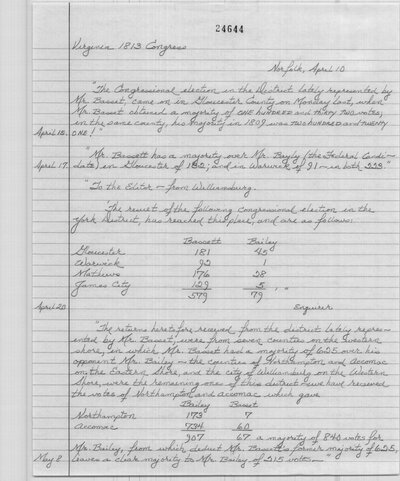 24644
Virginia 1813 Congress
Norfolk, April 10
"The Congressional election in the District lately represented by
Mr. Basset, came on in Gloucester County on Monday last, when
Mr. Basset obtained a majority of ONE HUNDRED and THIRTY TWO votes;
in the same county, his majority in 1809 was TWO HUNDRED and TWENTY
April 13. ONE!"
"Mr. Bassett has a majority over Mr. Bayly (the Federal Candi-
April 17. date) in Gloucester of 132, and in Warwick of 91 — in both 223."
"To the Editor — from Williamsburg.
The result of the following Congressional election in the
York District, has reached this place, and are as follows:
Bassett Bailey
Gloucester 181 45
Warwick 92 1
Mathews 176 28
James City 129 5
579 79 "
April 20 Enquirer
"The returns heretofore received, from the district lately repre-
sented by Mr. Basset, were from seven counties on the western
shore, in which Mr. Basset had a majority of 625 over his
opponent Mr. Bailey — the counties of Northampton and Accomac
on the Eastern Shore, and the city of Williamsburg on the Western
Shore, were the remaining ones of this district — we have received
the votes of Northampton and Accomac which gave
Bailey Basset
Northampton 173 7
Accomac 734 60
907 67 a majority of 840 votes for
Mr. Bailey, from which deduct Mr. Basset's former majority of 625,
May 8 leaves a clear majority to Mr. Bailey of 215 votes — "